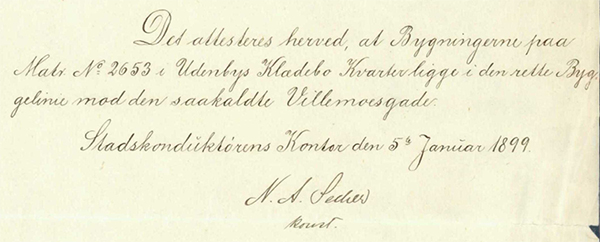 Det attesteres herved, at Bygningerne paa
Matr. No. 2653 i Udenbys Klædebo Kvarter ligge i den rette Byg-
gelinie mod den saakaldte Villemoesgade.
Stadskonduktörens Kontor den 5te Januar 1899.
N. A. Secher
konst.